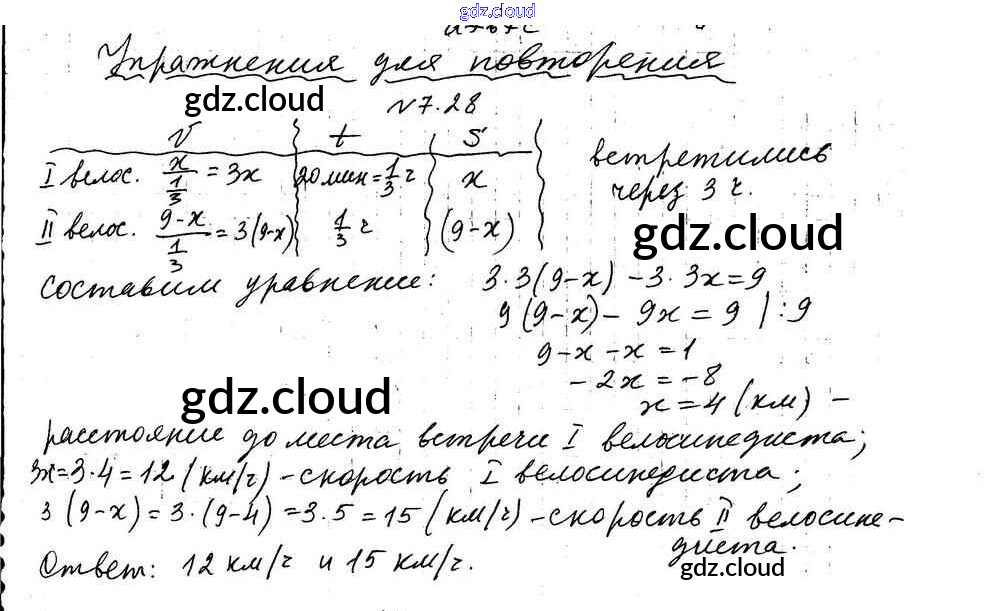 gdz.cloud
a+b+c
Упражнения для повторения
gdz.cloud
№7.28
V t S
I велос. x/(1/3) = 3x 20 мин = 1/3 ч x
II велос. (9-x)/(1/3) = 3(9-x) 1/3 ч (9-x)
встретились
через 3 ч.
gdz.cloud
составим уравнение: 3·3(9-x) - 3·3x = 9
9(9-x) - 9x = 9 | :9
9-x-x = 1
-2x = -8
gdz.cloud
x = 4 (км) -
расстояние до места встречи I велосипедиста;
3x = 3·4 = 12 (км/ч) - скорость I велосипедиста;
3(9-x) = 3·(9-4) = 3·5 = 15 (км/ч) - скорость II велосипе-
диста.
Ответ: 12 км/ч и 15 км/ч.
gdz.cloud